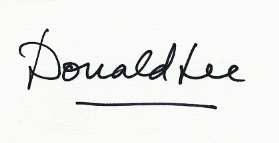 Donald Lee